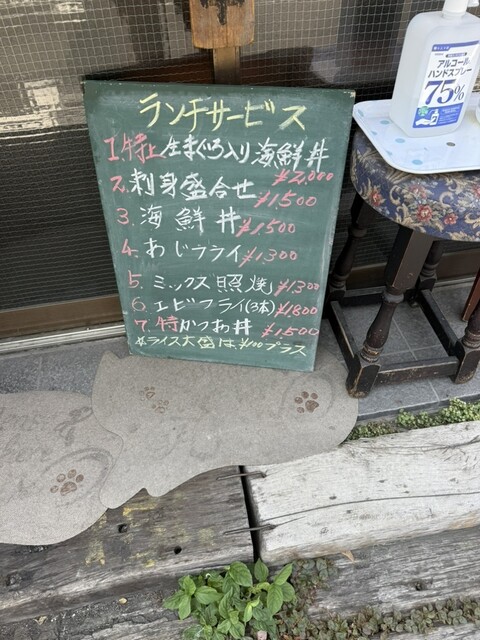 ランチサービス
1.特上生まぐろ入り海鮮丼
¥2,000
2.刺身盛合せ
¥1500
3.海鮮丼 ¥1500
4.あじフライ ¥1300
5.ミックス照焼 ¥1300
6.エビフライ(3本) ¥1800
7.特かつお丼 ¥1,500
☆ライス大盛は¥100プラス
アルコール
ハンドスプレー
75%